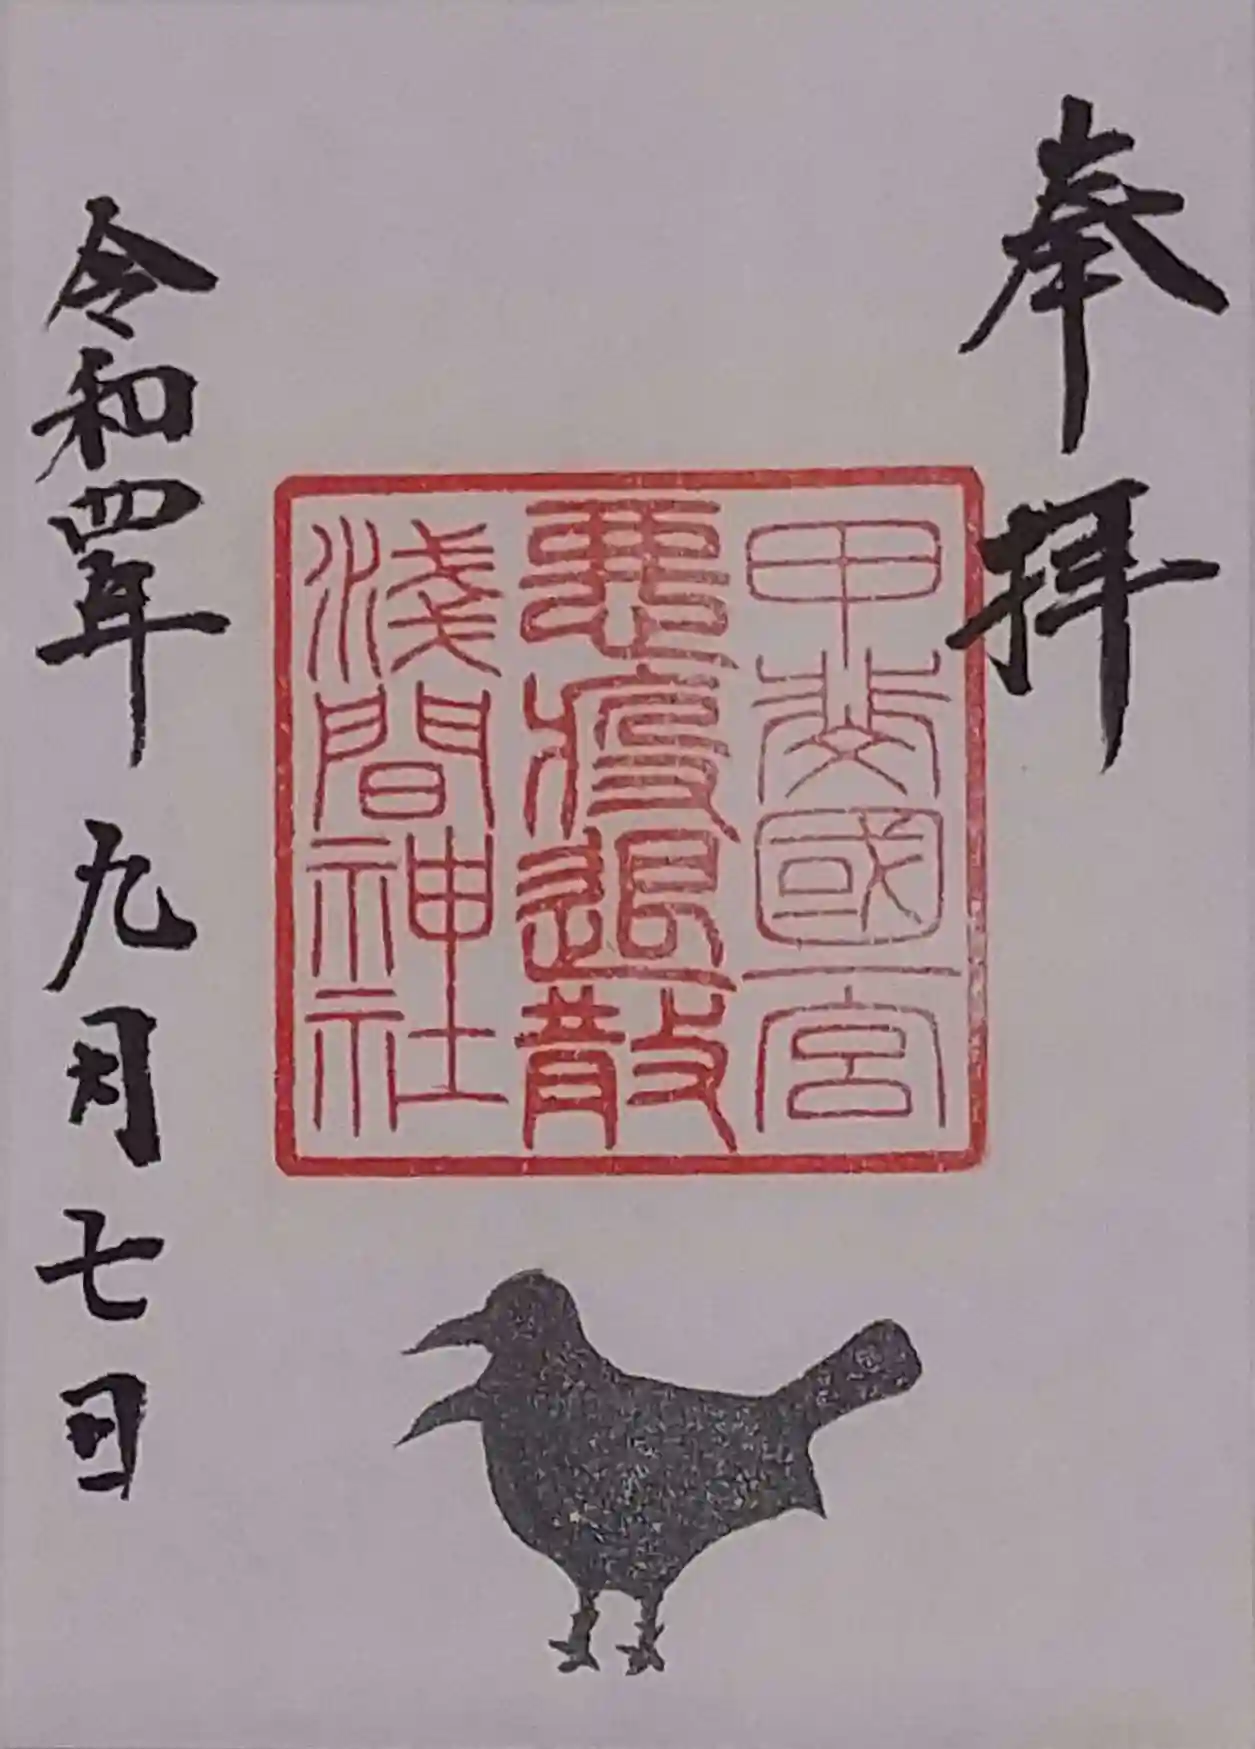 奉拝
甲斐國一宮
悪疫退散
浅間神社
令和四年 九月七日